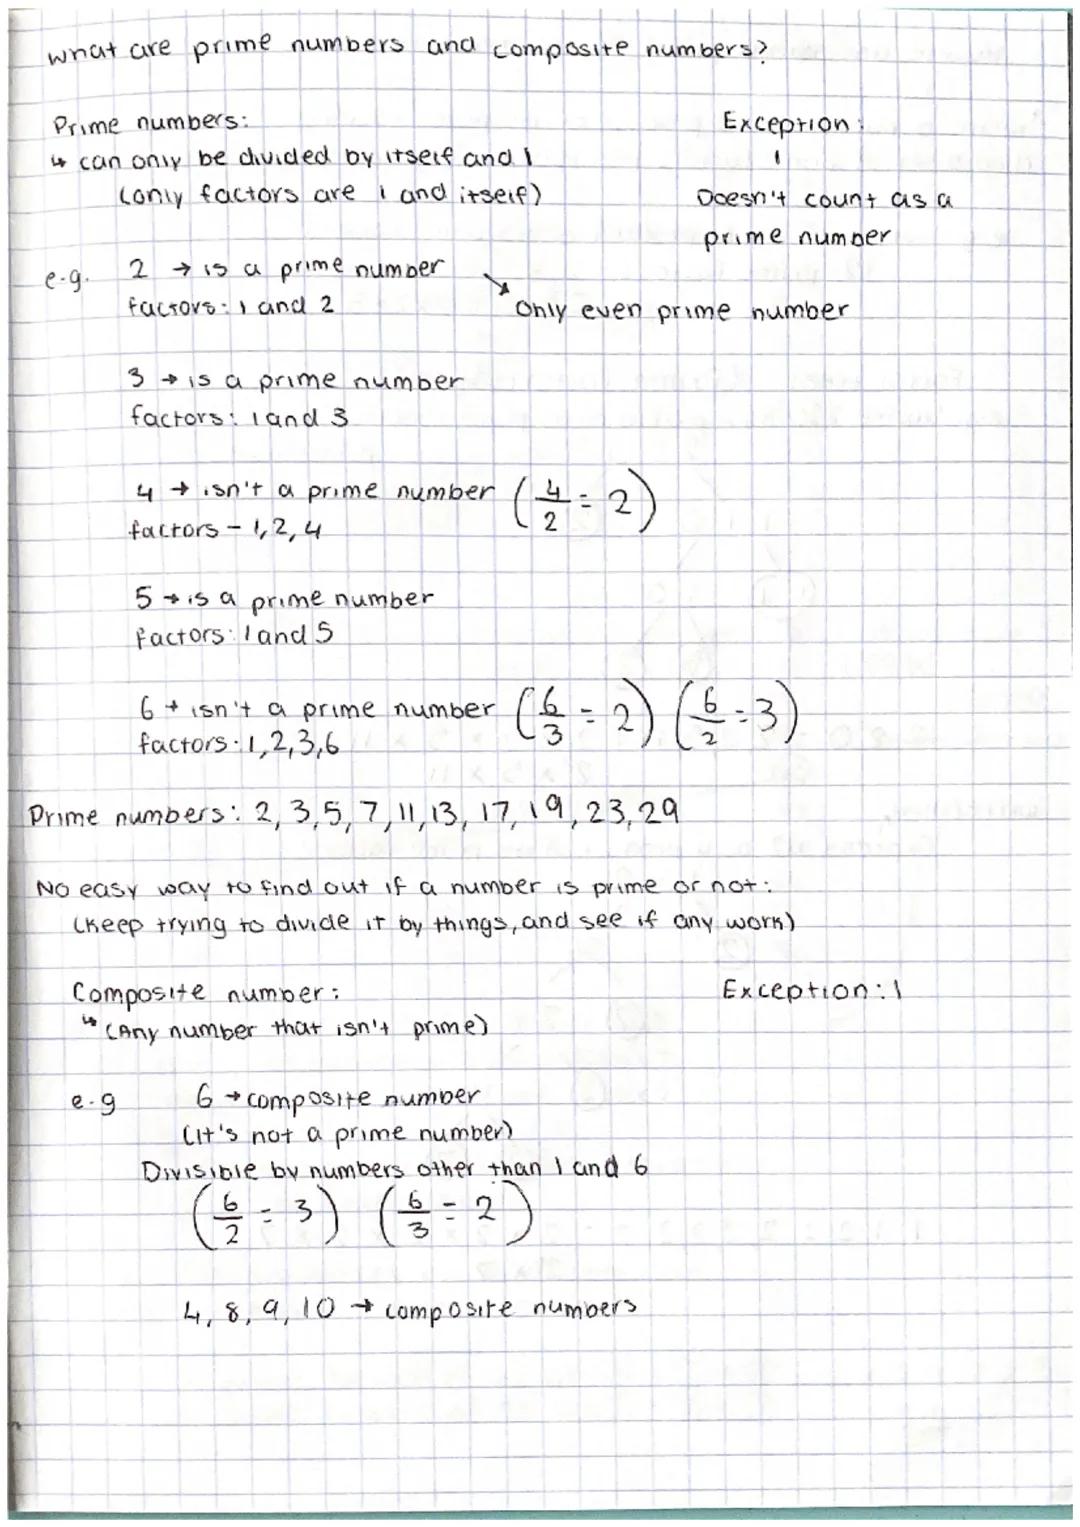 what are prime numbers and composite numbers?
Prime numbers:
↳ can only be divided by itself and 1
(only factors are 1 and itself)
Exception:
1
Doesn't count as a
prime number
e.g. 2 → is a prime number
factors: 1 and 2
↘ Only even prime number
3 → is a prime number
factors: 1 and 3
4 → isn't a prime number (4/2 = 2)
factors - 1, 2, 4
5 → is a prime number
factors: 1 and 5
6 → isn't a prime number (6/3 = 2) (6/2 = 3)
factors: 1, 2, 3, 6
Prime numbers: 2, 3, 5, 7, 11, 13, 17, 19, 23, 29
No easy way to find out if a number is prime or not:
(Keep trying to divide it by things, and see if any work)
Composite number: Exception: 1
↳ (Any number that isn't prime)
e.g 6 → composite number
(it's not a prime number)
Divisible by numbers other than 1 and 6
(6/2 = 3) (6/3 = 2)
4, 8, 9, 10 → composite numbers